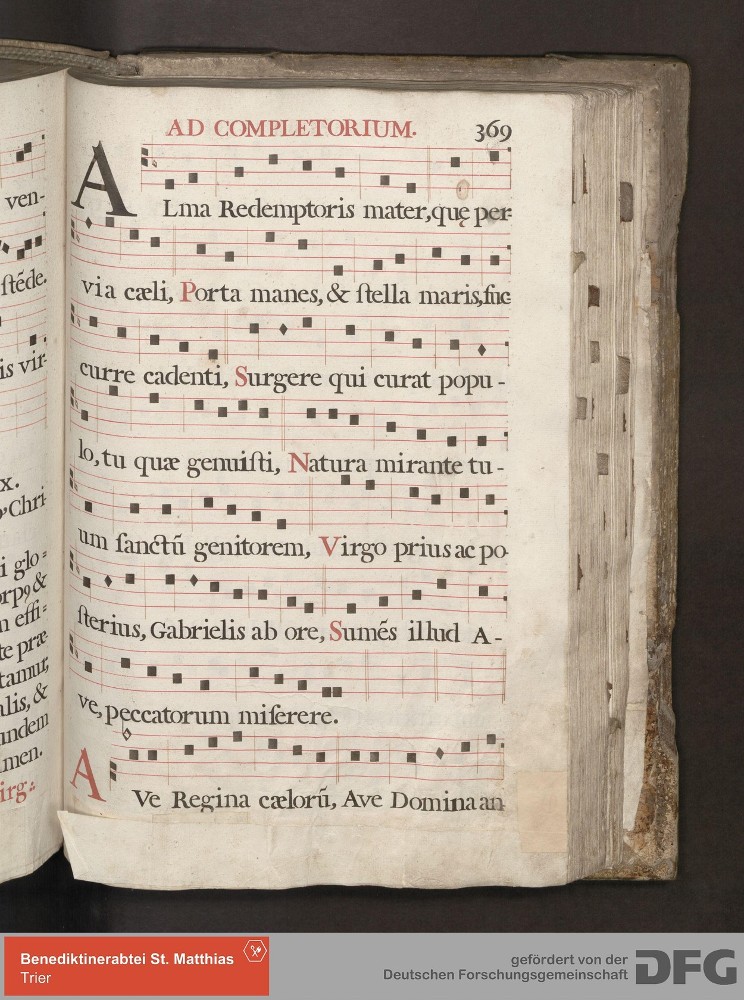 ven-
ſtẽde.
is vir-
x.
Chri
i glo=
orpꝯ &
n effi=
te præ-
tamur,
alis, &
undem
men.
irg:
AD COMPLETORIUM. 369
ALma Redemptoris mater, quę per-
via cæli, Porta manes, & ſtella maris, ſuc
curre cadenti, Surgere qui curat popu -
lo, tu quæ genuiſti, Natura mirante tu -
um ſanctũ genitorem, Virgo prius ac po-
ſterius, Gabrielis ab ore, Sumẽs illud A -
ve, peccatorum miſerere.
AVe Regina cælorũ, Ave Domina an-
Benediktinerabtei St. Matthias
Trier
gefördert von der
Deutschen Forschungsgemeinschaft
DFG